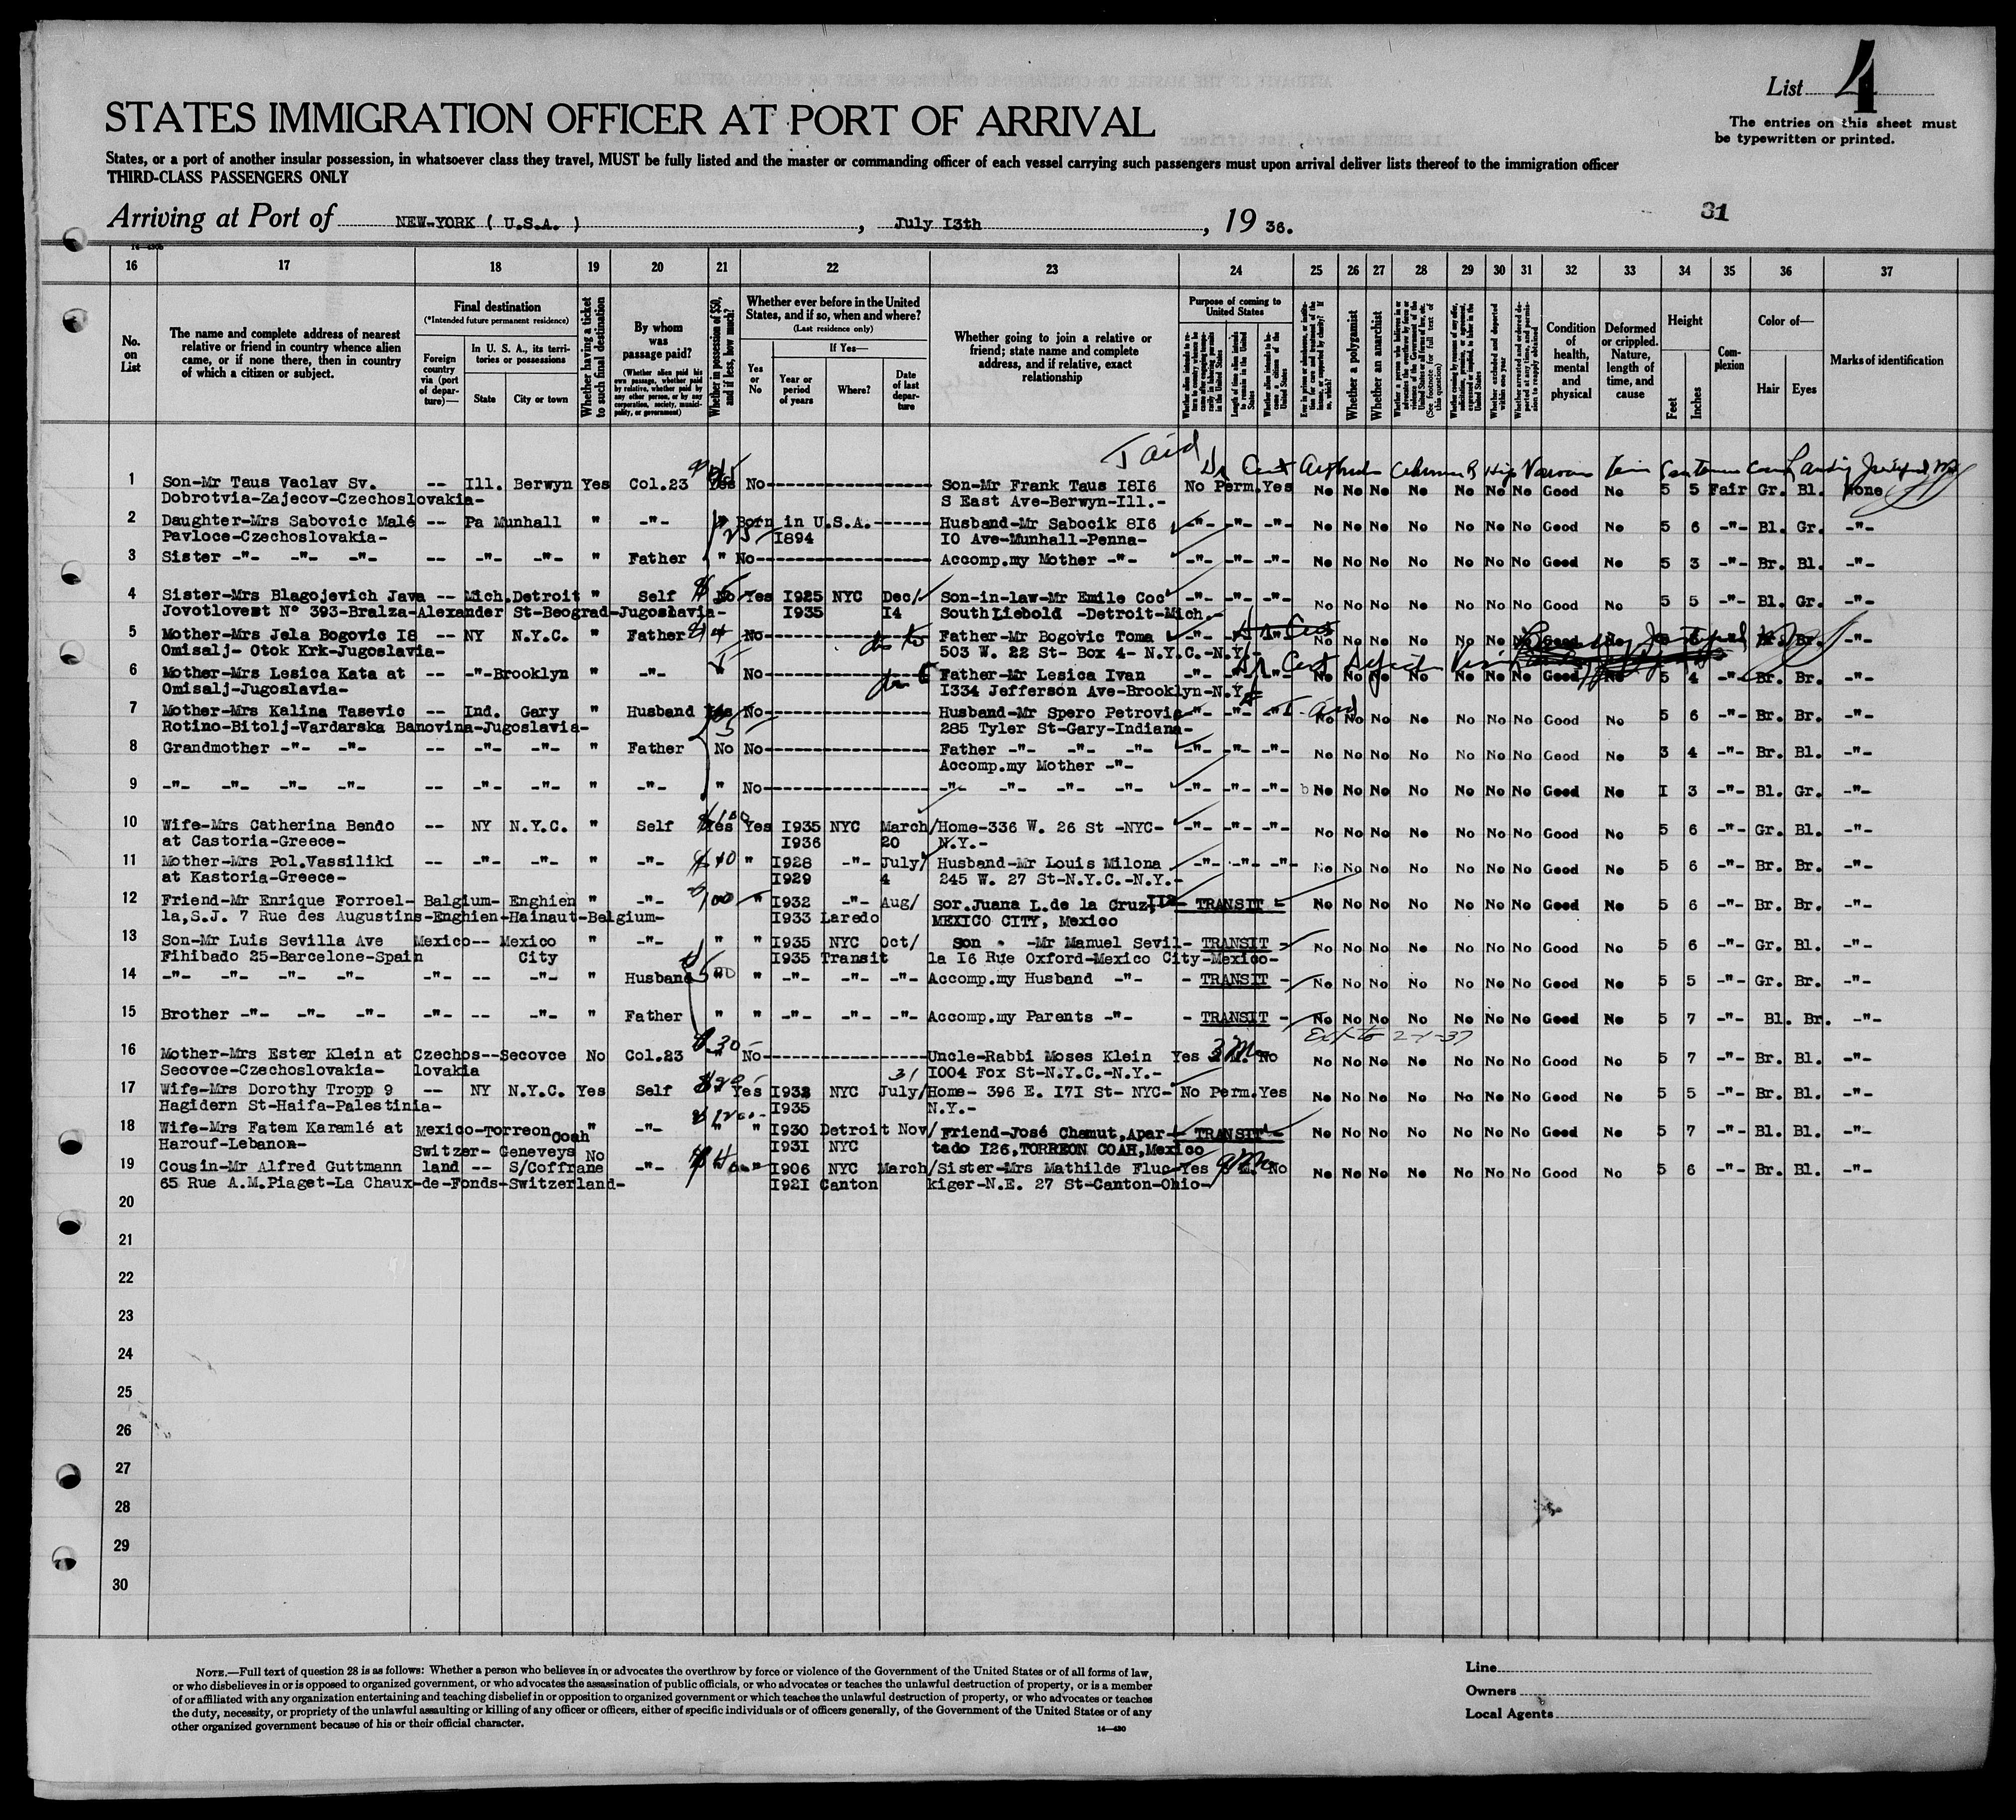 List 4
The entries on this sheet must
be typewritten or printed.
STATES IMMIGRATION OFFICER AT PORT OF ARRIVAL
States, or a port of another insular possession, in whatsoever class they travel, MUST be fully listed and the master or commanding officer of each vessel carrying such passengers must upon arrival deliver lists thereof to the immigration officer
THIRD-CLASS PASSENGERS ONLY
Arriving at Port of NEW-YORK ( U.S.A. ) , July I3th , 19 36.
31
16 17 18 19 20 21 22 23 24 25 26 27 28 29 30 31 32 33 34 35 36 37
No. on List
The name and complete address of nearest relative or friend in country whence alien came, or if none there, then in country of which a citizen or subject.
Final destination
(*Intended future permanent residence)
Foreign country via (port of departure)—
In U. S. A., its territories or possessions
State City or town
Whether having a ticket to such final destination
By whom was passage paid?
(Whether alien paid his own passage, whether paid by relative, whether paid by any other person, or by any corporation, society, municipality, or government)
Whether in possession of $50, and if less, how much?
Whether ever before in the United States, and if so, when and where?
(Last residence only)
Yes or No
If Yes—
Year or period of years Where? Date of last departure
Whether going to join a relative or friend; state name and complete address, and if relative, exact relationship
Purpose of coming to United States
Whether a polygamist
Whether an anarchist
Condition of health, mental and physical
Deformed or crippled. Nature, length of time, and cause
Height
Feet Inches
Complexion
Color of—
Hair Eyes
Marks of identification
1 Son-Mr Taus Vaclav Sv. -- Ill. Berwyn Yes Col.23 Yes No Son-Mr Frank Taus I8I6 No Perm. Yes No No No No No No No Good No 5 5 Fair Gr. Bl. None
Dobrotvia-Zajecov-Czechoslovakia- S East Ave-Berwyn-Ill.-
2 Daughter-Mrs Sabovcic Malé -- Pa Munhall " -"- " Born in U.S.A. Husband-Mr Sabocik 8I6 -"- -"- -"- No No No No No No No Good No 5 6 -"- Bl. Gr. -"-
Pavloce-Czechoslovakia- 25 I894 IO Ave-Munhall-Penna-
3 Sister -"- -"- -"- -- -"- -"- " Father " No Accomp.my Mother -"- -"- -"- -"- No No No No No No No Good No 5 3 -"- Br. Bl. -"-
4 Sister-Mrs Blagojevich Java -- Mich. Detroit " Self No Yes I925 NYC Dec/ Son-in-law-Mr Emile Coc -"- -"- -"- No No No No No No No Good No 5 5 -"- Bl. Gr. -"-
Jovotlovest N° 393-Bralza-Alexander St-Beograd-Jugoslavia- I935 I4 South Liebold -Detroit-Mich.-
5 Mother-Mrs Jela Bogovic I8 -- NY N.Y.C. " Father No Father-Mr Bogovic Toma -"- -"-
Omisalj- Otok Krk-Jugoslavia- 503 W. 22 St- Box 4- N.Y.C.-N.Y.
6 Mother-Mrs Lesica Kata at -- -"- Brooklyn " -"- " No Father-Mr Lesica Ivan -"- -"- -"- No No No No No No No Good No 5 4 -"- Br. Br. -"-
Omisalj-Jugoslavia- I334 Jefferson Ave-Brooklyn-N.Y.
7 Mother-Mrs Kalina Tasevic -- Ind. Gary " Husband No Husband-Mr Spero Petrovic -"- -"- -"- No No No No No No No Good No 5 6 -"- Br. Br. -"-
Rotino-Bitolj-Vardarska Banovina-Jugoslavia- 285 Tyler St-Gary-Indiana-
8 Grandmother -"- -"- -- -"- -"- " Father No No Father -"- -"- -"- -"- -"- -"- No No No No No No No Good No 3 4 -"- Br. Bl. -"-
Accomp.my Mother -"-
9 -"- -"- -"- -"- -- -"- -"- " -"- " No -"- -"- -"- -"- -"- -"- -"- No No No No No No No Good No I 3 -"- Bl. Gr. -"-
10 Wife-Mrs Catherina Bendo -- NY N.Y.C. " Self Yes Yes I935 NYC March/ Home-336 W. 26 St -NYC- -"- -"- -"- No No No No No No No Good No 5 6 -"- Gr. Bl. -"-
at Castoria-Greece- I936 20 N.Y.-
11 Mother-Mrs Pol.Vassiliki -- -"- -"- " -"- $40 " I928 -"- July/ Husband-Mr Louis Milona -"- -"- -"- No No No No No No No Good No 5 6 -"- Br. Br. -"-
at Kastoria-Greece- I929 4 245 W. 27 St-N.Y.C.-N.Y.-
12 Friend-Mr Enrique Forroel- Balgium- Enghien " -"- " I932 -"- Aug/ Sor.Juana L.de la Cruz, II2 TRANSIT No No No No No No No Good No 5 6 -"- Br. Br. -"-
la,S.J. 7 Rue des Augustins-Enghien-Hainaut-Belgium- I933 Laredo MEXICO CITY, Mexico
13 Son-Mr Luis Sevilla Ave Mexico-- Mexico " -"- " " I935 NYC Oct/ Son -Mr Manuel Sevil- TRANSIT No No No No No No No Good No 5 6 -"- Gr. Bl. -"-
Fihibado 25-Barcelone-Spain City I935 Transit la I6 Rue Oxford-Mexico City-Mexico-
14 -"- -"- -"- -"- -"- -- -"- " Husband " " -"- -"- -"- Accomp.my Husband -"- - TRANSIT - No No No No No No No Good No 5 5 -"- Gr. Br. -"-
15 Brother -"- -"- -"- -"- -- -"- " Father " " -"- -"- -"- Accomp.my Parents -"- - TRANSIT - No No No No No No No Good No 5 7 -"- Bl. Br. -"-
16 Mother-Mrs Ester Klein at Czechos--Secovce No Col.23 " No Uncle-Rabbi Moses Klein Yes No No No No No No No No Good No 5 7 -"- Br. Bl. -"-
Secovce-Czechoslovakia- lovakia I004 Fox St-N.Y.C.-N.Y.-
17 Wife-Mrs Dorothy Tropp 9 -- NY N.Y.C. Yes Self Yes I932 NYC July/ Home- 396 E. I7I St- NYC- No Perm. Yes No No No No No No No Good No 5 5 -"- Br. Bl. -"-
Hagidern St-Haifa-Palestinia- I935 N.Y.-
18 Wife-Mrs Fatem Karamlé at Mexico-Torreon Coah " -"- " " I930 Detroit Nov/ Friend-José Chamut,Apar- TRANSIT No No No No No No No Good No 5 7 -"- Bl. Bl. -"-
Harouf-Lebanon- I93I NYC tado I26,TORREON COAH,Mexico
19 Cousin-Mr Alfred Guttmann Switzer- land -- Geneveys S/Coffrane No -"- " I906 NYC March/ Sister-Mrs Mathilde Fluc- Yes No No No No No No No No Good No 5 6 -"- Br. Bl. -"-
65 Rue A.M.Piaget-La Chaux-de-Fonds-Switzerland- I92I Canton kiger-N.E. 27 St-Canton-Ohio-
20
21
22
23
24
25
26
27
28
29
30
NOTE.—Full text of question 28 is as follows: Whether a person who believes in or advocates the overthrow by force or violence of the Government of the United States or of all forms of law,
or who disbelieves in or is opposed to organized government, or who advocates the assassination of public officials, or who advocates or teaches the unlawful destruction of property, or is a member
of or affiliated with any organization entertaining and teaching disbelief in or opposition to organized government or which teaches the unlawful destruction of property, or who advocates or teaches
the duty, necessity, or propriety of the unlawful assaulting or killing of any officer or officers, either of specific individuals or of officers generally, of the Government of the United States or of any
other organized government because of his or their official character.
14—430
Line
Owners
Local Agents